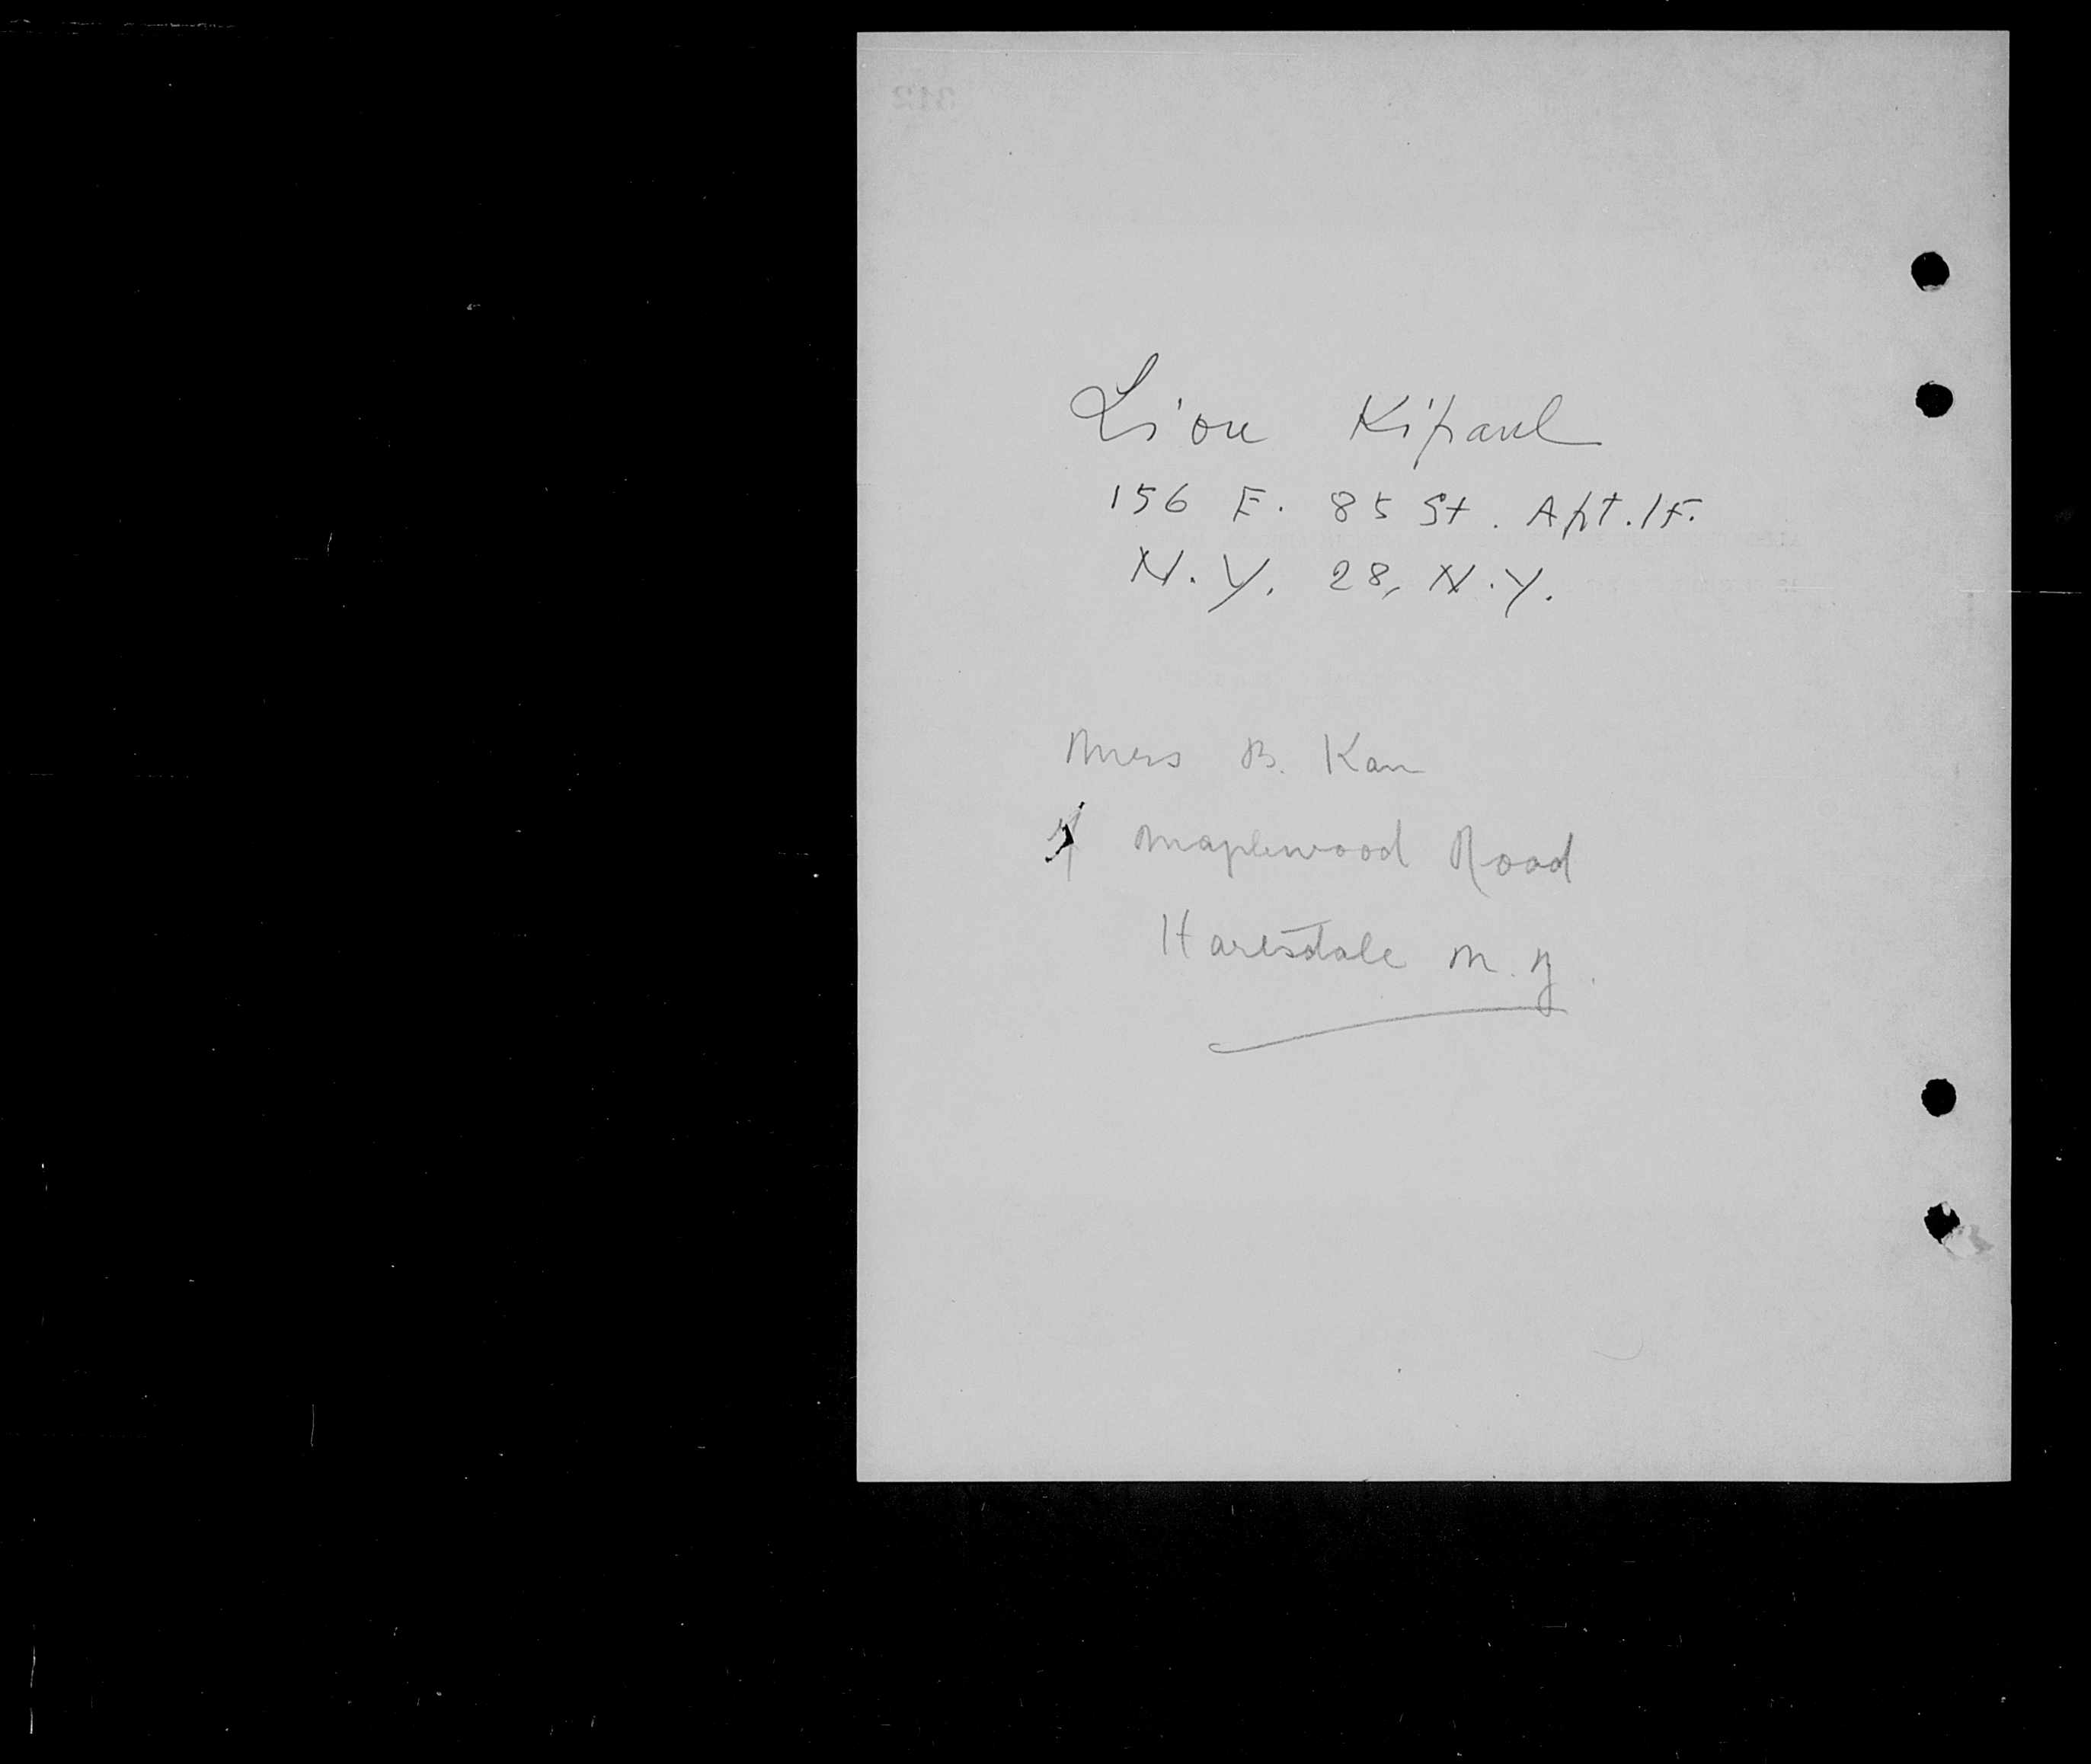 Lion Kipaul
156 E. 85 St. Apt. 1F.
N.Y. 28, N.Y.
Mers B. Kan
Maplewood Road
Haresdale N.Y.